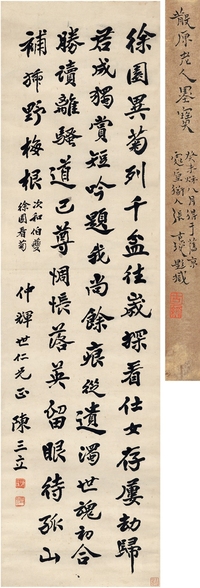 徐園異菊列千盆往歲探看仕女存屢劫歸
君成獨賞短吟題我尚餘痕從遺濁世魂初合
勝讀離騷道已尊惆悵落英留眼待孤山
補綴野梅根
次和伯夔
徐園看菊
仲輝世仁兄正
陳三立
散原老人墨寶
癸未秋八月